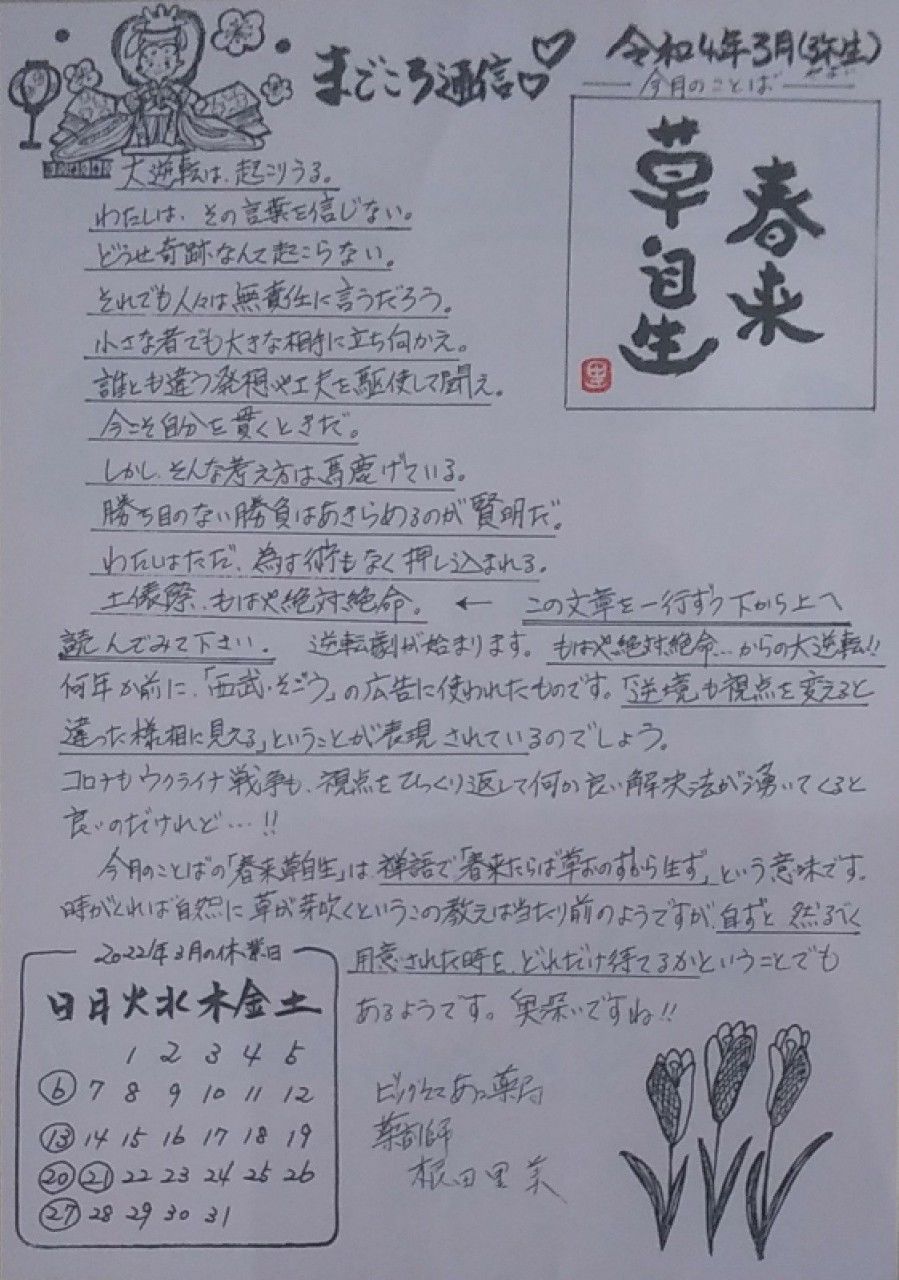 まごころ通信
令和4年3月(弥生)
やよい
今月のことば
春来
草自生
里
大逆転は、起こりうる。
わたしは、その言葉を信じない。
どうせ奇跡なんて起こらない。
それでも人々は無責任に言うだろう。
小さな者でも大きな相手に立ち向かえ。
誰とも違う発想や工夫を駆使して闘え。
今こそ自分を貫くときだ。
しかし、そんな考え方は馬鹿げている。
勝ち目のない勝負はあきらめるのが賢明だ。
わたしはただ、為す術もなく押し込まれる。
土俵際、もはや絶対絶命。 ← この文章を一行ずつ下から上へ
読んでみて下さい。 逆転劇が始まります。もはや絶対絶命…からの大逆転!!
何年か前に、「西武・そごう」の広告に使われたものです。「逆境も視点を変えると
違った様相に見える」ということが表現されているのでしょう。
コロナもウクライナ戦争も、視点をひっくり返して何か良い解決法が湧いてくると
良いのだけれど…!!
今月のことばの「春来草自生」は、禅語で「春来たらば草おのずから生ず」という意味です。
時がくれば自然に草が芽吹くというこの教えは当たり前のようですが、自ずと然るべく
用意された時を、どれだけ待てるかということでも
あるようです。奥深いですね!!
2022年3月の休業日
日月火水木金土
1 2 3 4 5
6 7 8 9 10 11 12
13 14 15 16 17 18 19
20 21 22 23 24 25 26
27 28 29 30 31
薬局
薬剤師
根田里美